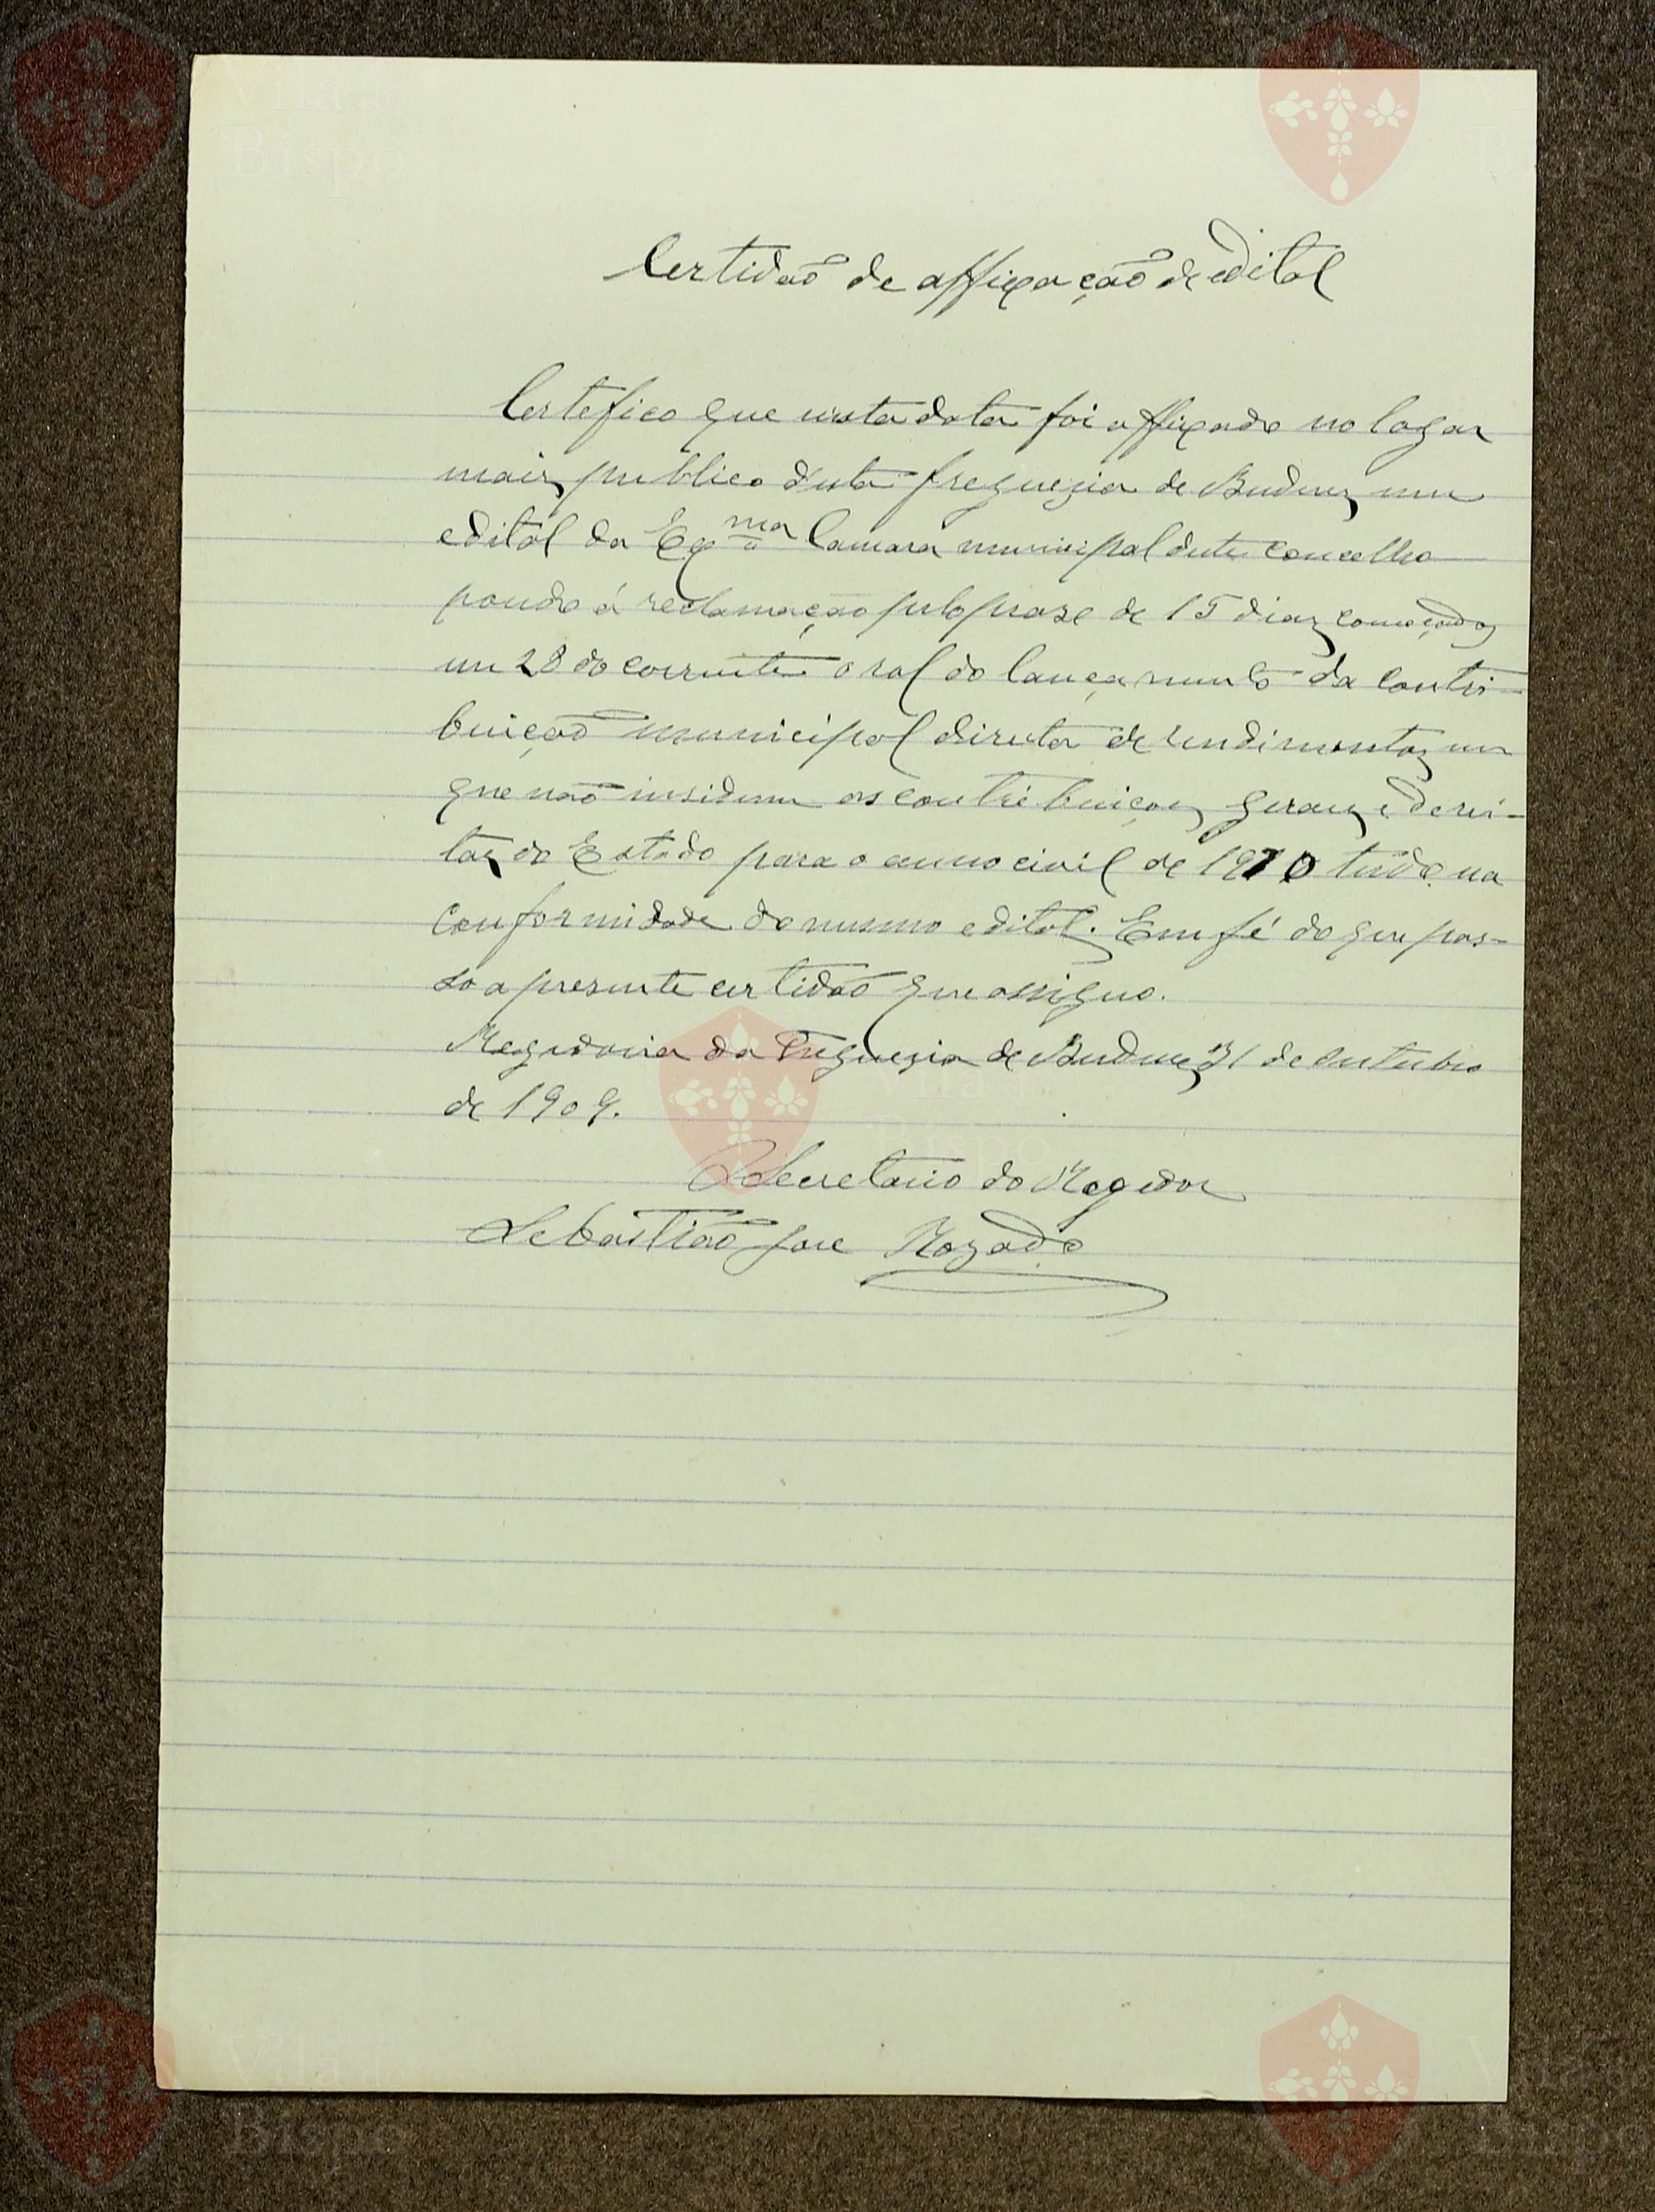 Certidão de affixação de edital
Certefico que nesta data foi affixado no logar
mais publico desta freguezia de Budens um
edital da Exma Camara municipal deste concelho
pondo á reclamação pelo praso de 15 dias começados
em 28 do corrente o rol do lançamento da contri-
buição municipal directa de rendimentos em
que não insidem as contribuições geraes e derei-
tos do Estado para o anno civil de 1910 tudo na
conformidade do mesmo edital. Em fé do que pas-
so a presente certidão que assigno.
Regedoria da Freguezia de Budens 31 de outubro
de 1909.
O Secretario do Regedor
Sebastião José Rozado
Vila do
Bispo